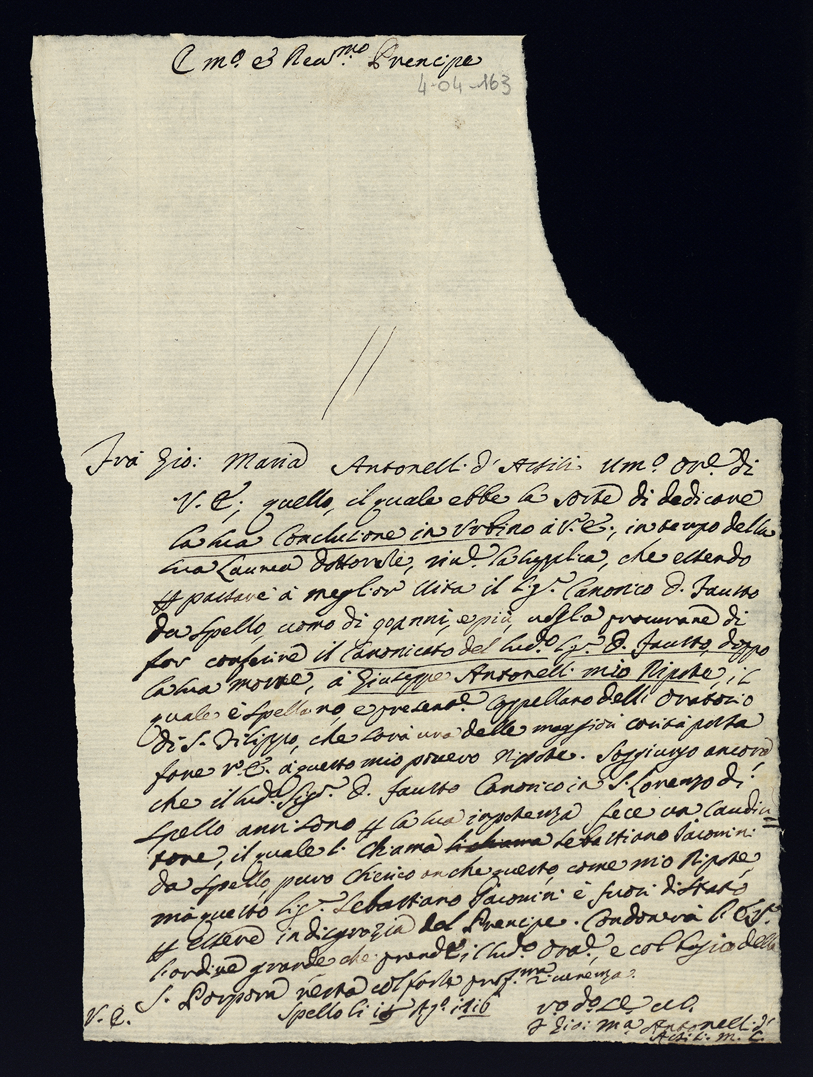 Em.º e Reu.mo Prencipe
4-04-163
Frà Gio: Maria Antonelli d'Assisi Um.º Or.e di
V. E.; quello, il quale ebbe la sorte di dedicare
la sua Conclusione in Urbino à V. E., in tempo della
sua Laurea dottorale, la supplica, che essendo
à meglior Vita il Sig.r Canonico D. Fausto
da Spello, uomo di anni, e più, voglia procurare di
far conferire il Canonicato del sud.o Sig.r D. Fausto, doppo
la sua morte, à Giuseppe Antonelli mio Nipote, il
quale è Spellano e present.e Cappellano dell'Oratorio
di S. Filippo, che sarà una delle maggiori carità possa
fare V. E. à questo mio povero Nipote. Soggiungo ancora
che il sud.o Sig.r D. Fausto Canonico in S. Lorenzo di
Spello anni sono la sua impotenza fece un Coadiu=
tore, il quale si chiama Sebastiano Jacomini
da Spello puro Chierico anche questo come mio Nipote,
mà questo Sig.r Sebastiano Jacomini è fuori di Stato
essere in disgrazia del Prencipe. Condonerà l'
l'ardire grande che prende il sud.o Orat.e, e col bagio della
S. Porpora resta col farle prof.ma riverenza.
Spello li Ag.o
V. E.
F. Gio: M.a Antonelli d'
Assisi M. C.